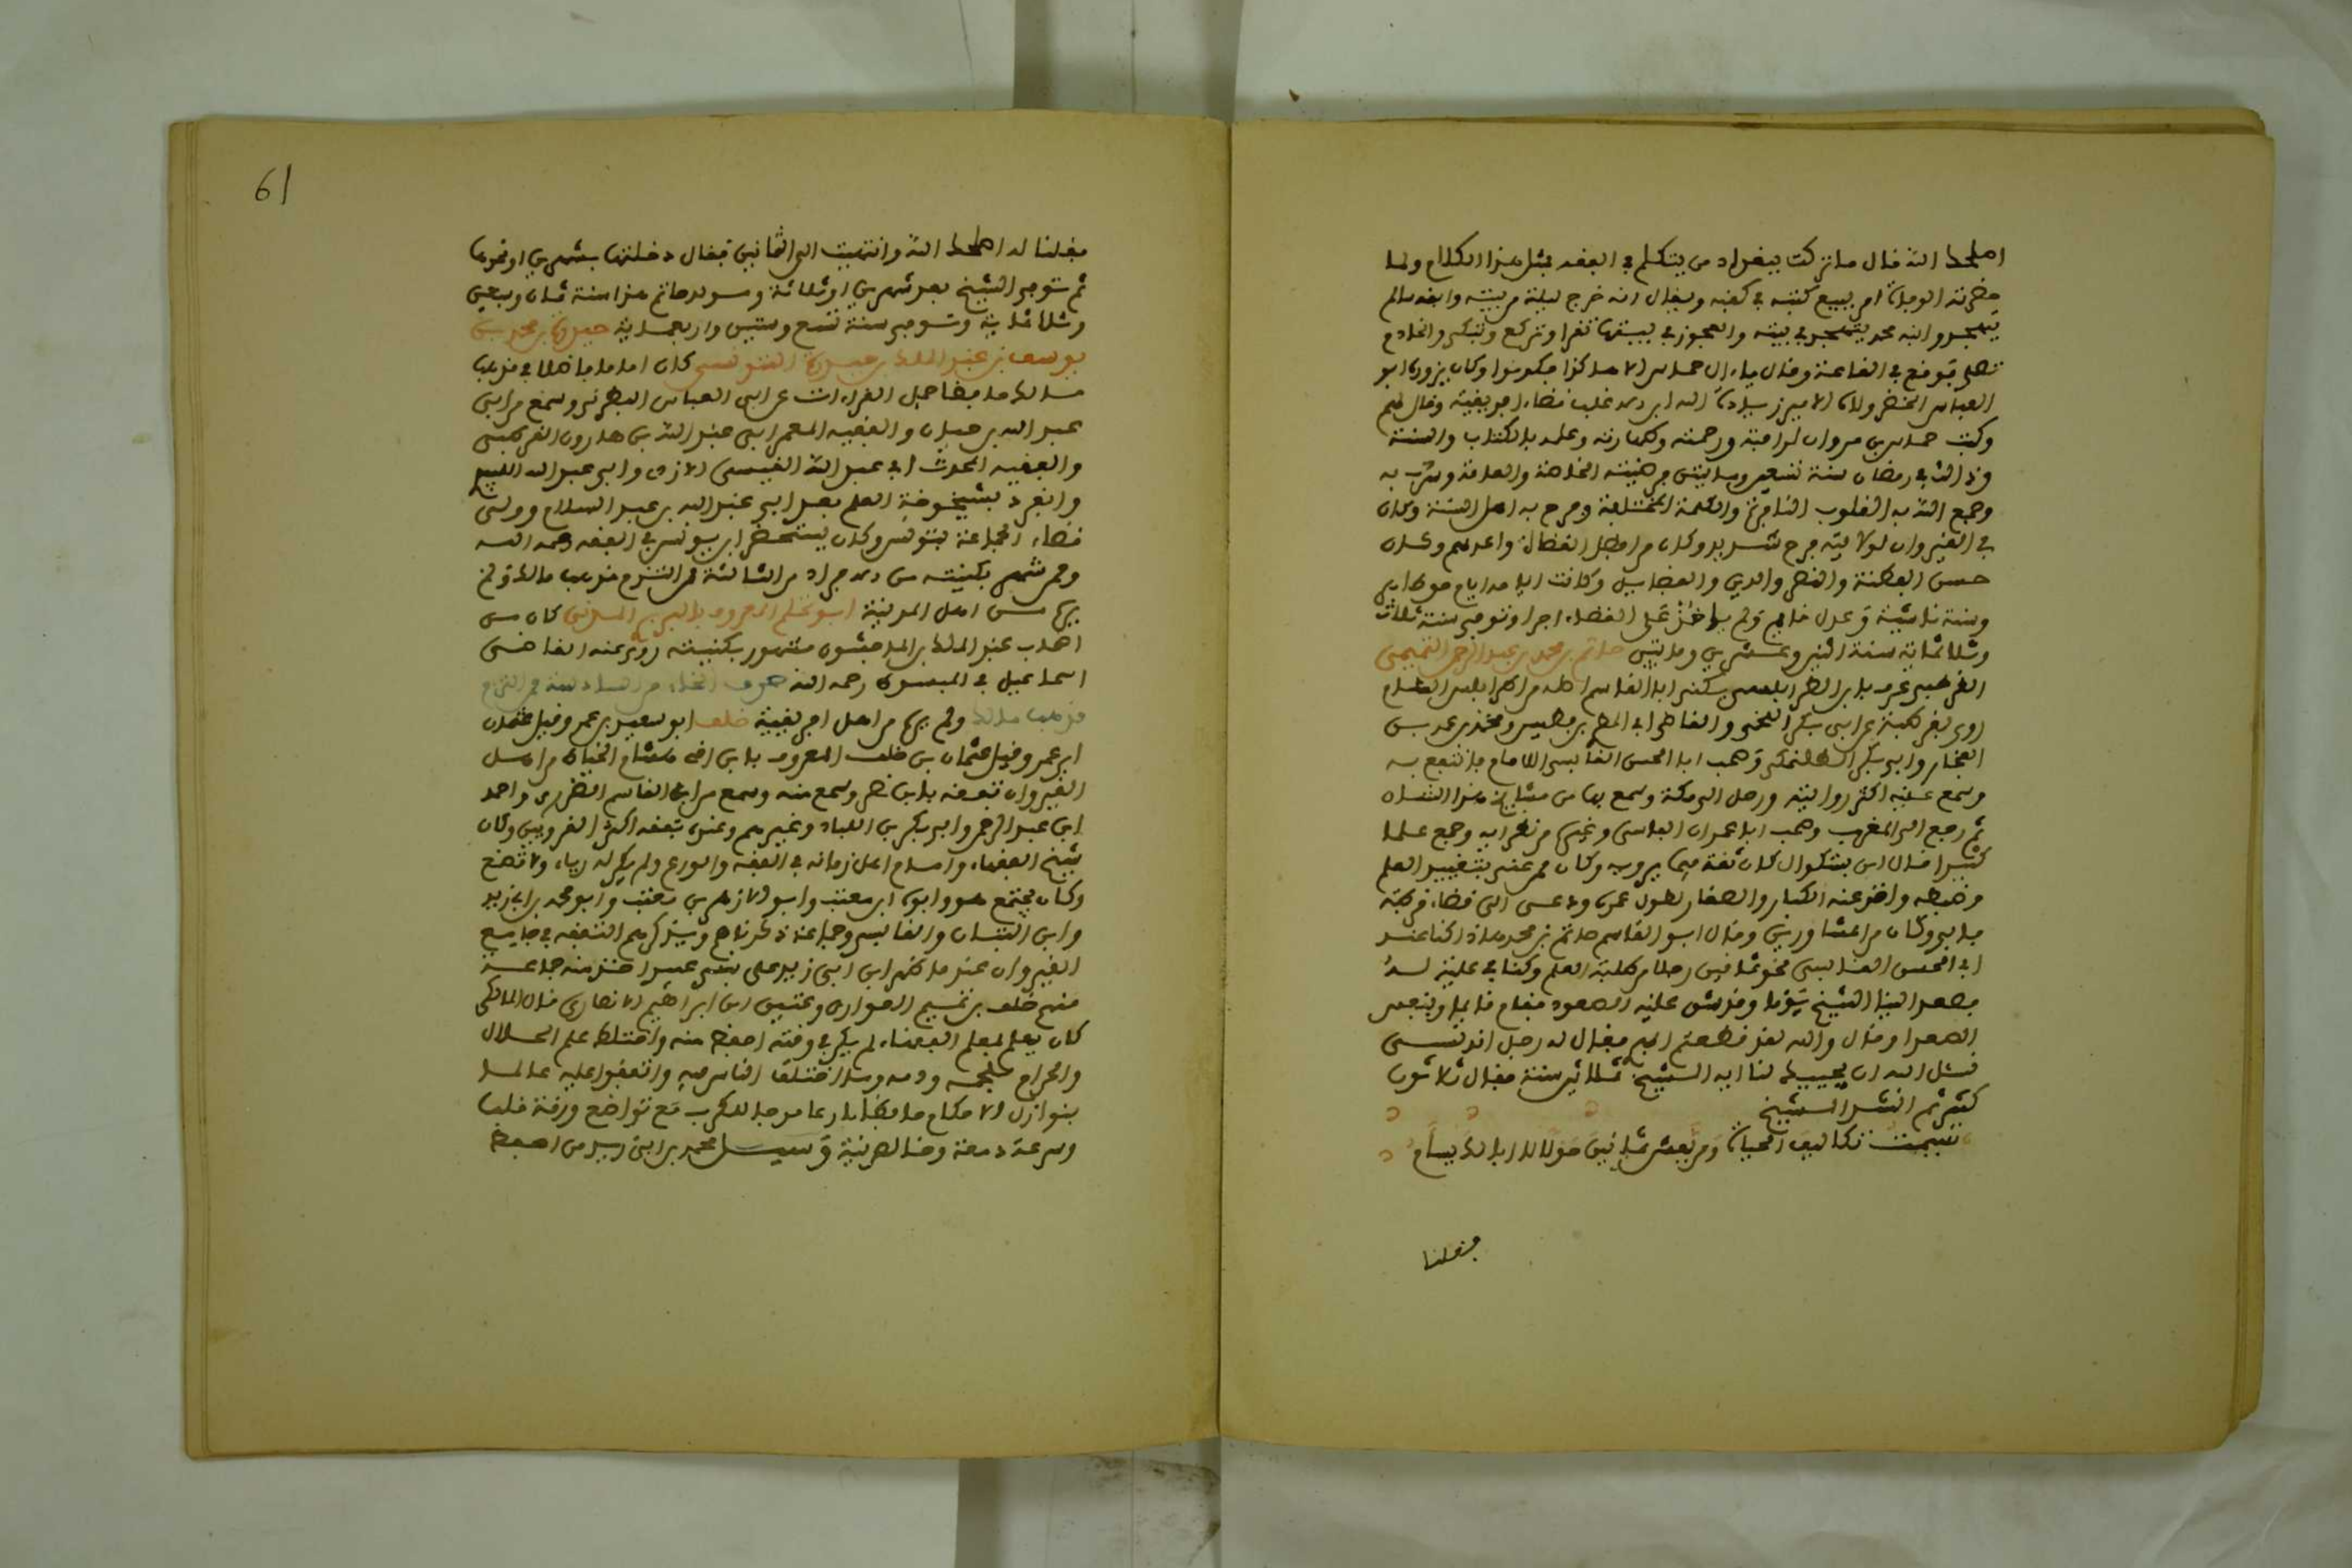 اصلحك الله قال ما تركت ببغداد من يتكلم في الفقه بمثل هذا الكلام ولما
حضرته الوفاة امر ببيع كتبه في كفنه ويقال انه خرج ليلة من بيته وابنه سالم
يتهجد وابنه محمد يتهجد في بيته والعجوز في بيتها تقرا وتركع وتبكي والخادم
تصلي فوقف في القاعة وقال يا ال حماس الا هاكذا فكونوا وكان يزوره ابو
العباس الخضر ولاه الامير زيادة الله ابن اغلب قضاء افريقية وقال لهم
وليت حماس بن مروان لرافته ورحمته وطهارته وعلمه بالكتاب والسنة
وذالك في رمضان سنة تسعين ومايتين
وجمع الله به القلوب النافرة والكلمة المختلفة وفرح به اهل السنة وكان
في القيروان لولايته فرح شديد وكان من افضل القضاة واعدلهم وكان
حسن الفطنة والنظر والدين والفضايل وكانت ايامه ايام حق ظاهر
وسنة فاشية وعدل قايم ولم ياخذ على القضاء اجرا وتوفي سنة ثلاث
وثلاثماية سنة اثنين وعشرين ومايتين حاتم بن محمد بن عبد الرحمن التميمي
القرطبي عرف بابن الطرابلسي يكنى ابا القاسم اصله من اطرابلس الشام
روى بقرطبة عن ابي بكر التجيبي والقاضي ابي المطرف بن فطيس ومحمد بن عمر بن
الفخار وابي بكر الطلمنكي وصحب ابا الحسن القابسي الامام فانتفع به
وسمع عليه اكثر روايته ورحل الى مكة وسمع بها من مشايخ هذا الشان
ثم رجع الى المغرب وصحب ابا عمران الفاسي وغيره من نظرايه وجمع علما
كثيرا قال ابن بشكوال كان ثقة فيما يرويه وكان ممن عني بتقييد العلم
وضبطه واخذ عنه الكبار والصغار لطول عمره ودعي الى قضاء قرطبة
فابى وكان من المشاورين وقال ابو القاسم حاتم بن محمد هاذا كنا عند
ابي الحسن القابسي نحو ثمانين رجلا من طلبة العلم وكنا في علية له
فصعد الينا الشيخ يوما وقد شق عليه الصعود فقام قايما وتنفس
الصعدا وقال والله لقد قطعتم ابهري فقال له رجل اندلسي
نسال الله ان يحييك لنا ايها الشيخ ثلاثين سنة فقال ثلاثون
كثير ثم انشد الشيخ
سيمت تكاليف الحياة ومن يعش ثمانين حولا لا ابا لك يسام
فقلنا
فقلنا له اصلحك الله وانتهيت الى الثمانين فقال دخلتها بشهرين او نحوها
ثم توفي الشيخ بعد شهرين او ثلاثة ومولد حاتم هذا سنة ثمان وسبعين
وثلاثماية وتوفي سنة تسع وستين واربعماية حيدرة بن محمد بن
يوسف بن عبد الملك بن حيدرة التونسي كان اماما فاضلا في مذهب
مالك حافظا حمل القراءات عن ابي العباس البطرني وسمع من ابي
عبد الله بن حيان والفقيه المعمر ابي عبد الله بن هارون القرطبي
والفقيه المحدث ابي عبد الله القيسي الازدي وابي عبد الله اللبيدي
وانفرد بشيخوخة العلم بعد ابي عبد الله بن عبد السلام وولي
قضاء الجماعة بتونس وكان يستحضر ابن يونس في الفقه رحمه الله
وممن شهر بكنيته من الثالثة ممن التزم مذهب مالك ولم
يره من اهل المدينة ابو ثابت المعروف بالمدني كان من
اصحاب عبد الملك بن الماجشون مشهور بكنيته روى عنه القاضي
اسماعيل في المبسوط رحمه الله حرف الخاء من السادسة ممن التزم
مذهب مالك ولم يره من اهل افريقية خلف ابو سعيد بن عمر وقيل عثمان
ابن عمر وقيل عثمان بن خلف المعروف بابن اخي هشام الخياط من اهل
القيروان تفقه بابن نصر وسمع منه وسمع من ابي القاسم الطرزي واحمد
ابن عبد الرحمن وابي بكر بن اللباد وغيرهم وعنه تفقه اكثر القرويين وكان
شيخ الفقهاء وامام اهل زمانه في الفقه والورع ولم يكن له رياء ولا تصنع
وكان يجتمع هو وابوه ابن معتب وابو الازهر بن معتب وابو محمد بن ابي زيد
وابن التبان والقابسي وجماعة ذكرناهم ويذاكرهم التفقه في جامع
القيروان عندما ظهر ابن ابي زيد على اخذ منه جماعة
منهم خلف بن تميم الهواري وعتيق ابن ابراهيم الانصاري قال المالكي
كان يعلم لمعلم الفقهاء لم يكن في وقته احفظ منه واختلط علم الحلال
والحرام بلحمه ودمه وما اختلف الناس فيه واتفقوا عليه عالما
بنوازل الاحكام حافظا بارعا فراجا للكرب مع تواضع ورقة قلب
وسرعة دمعة وخالص نية وسيل محمد بن ابي زيد من احفظ
61